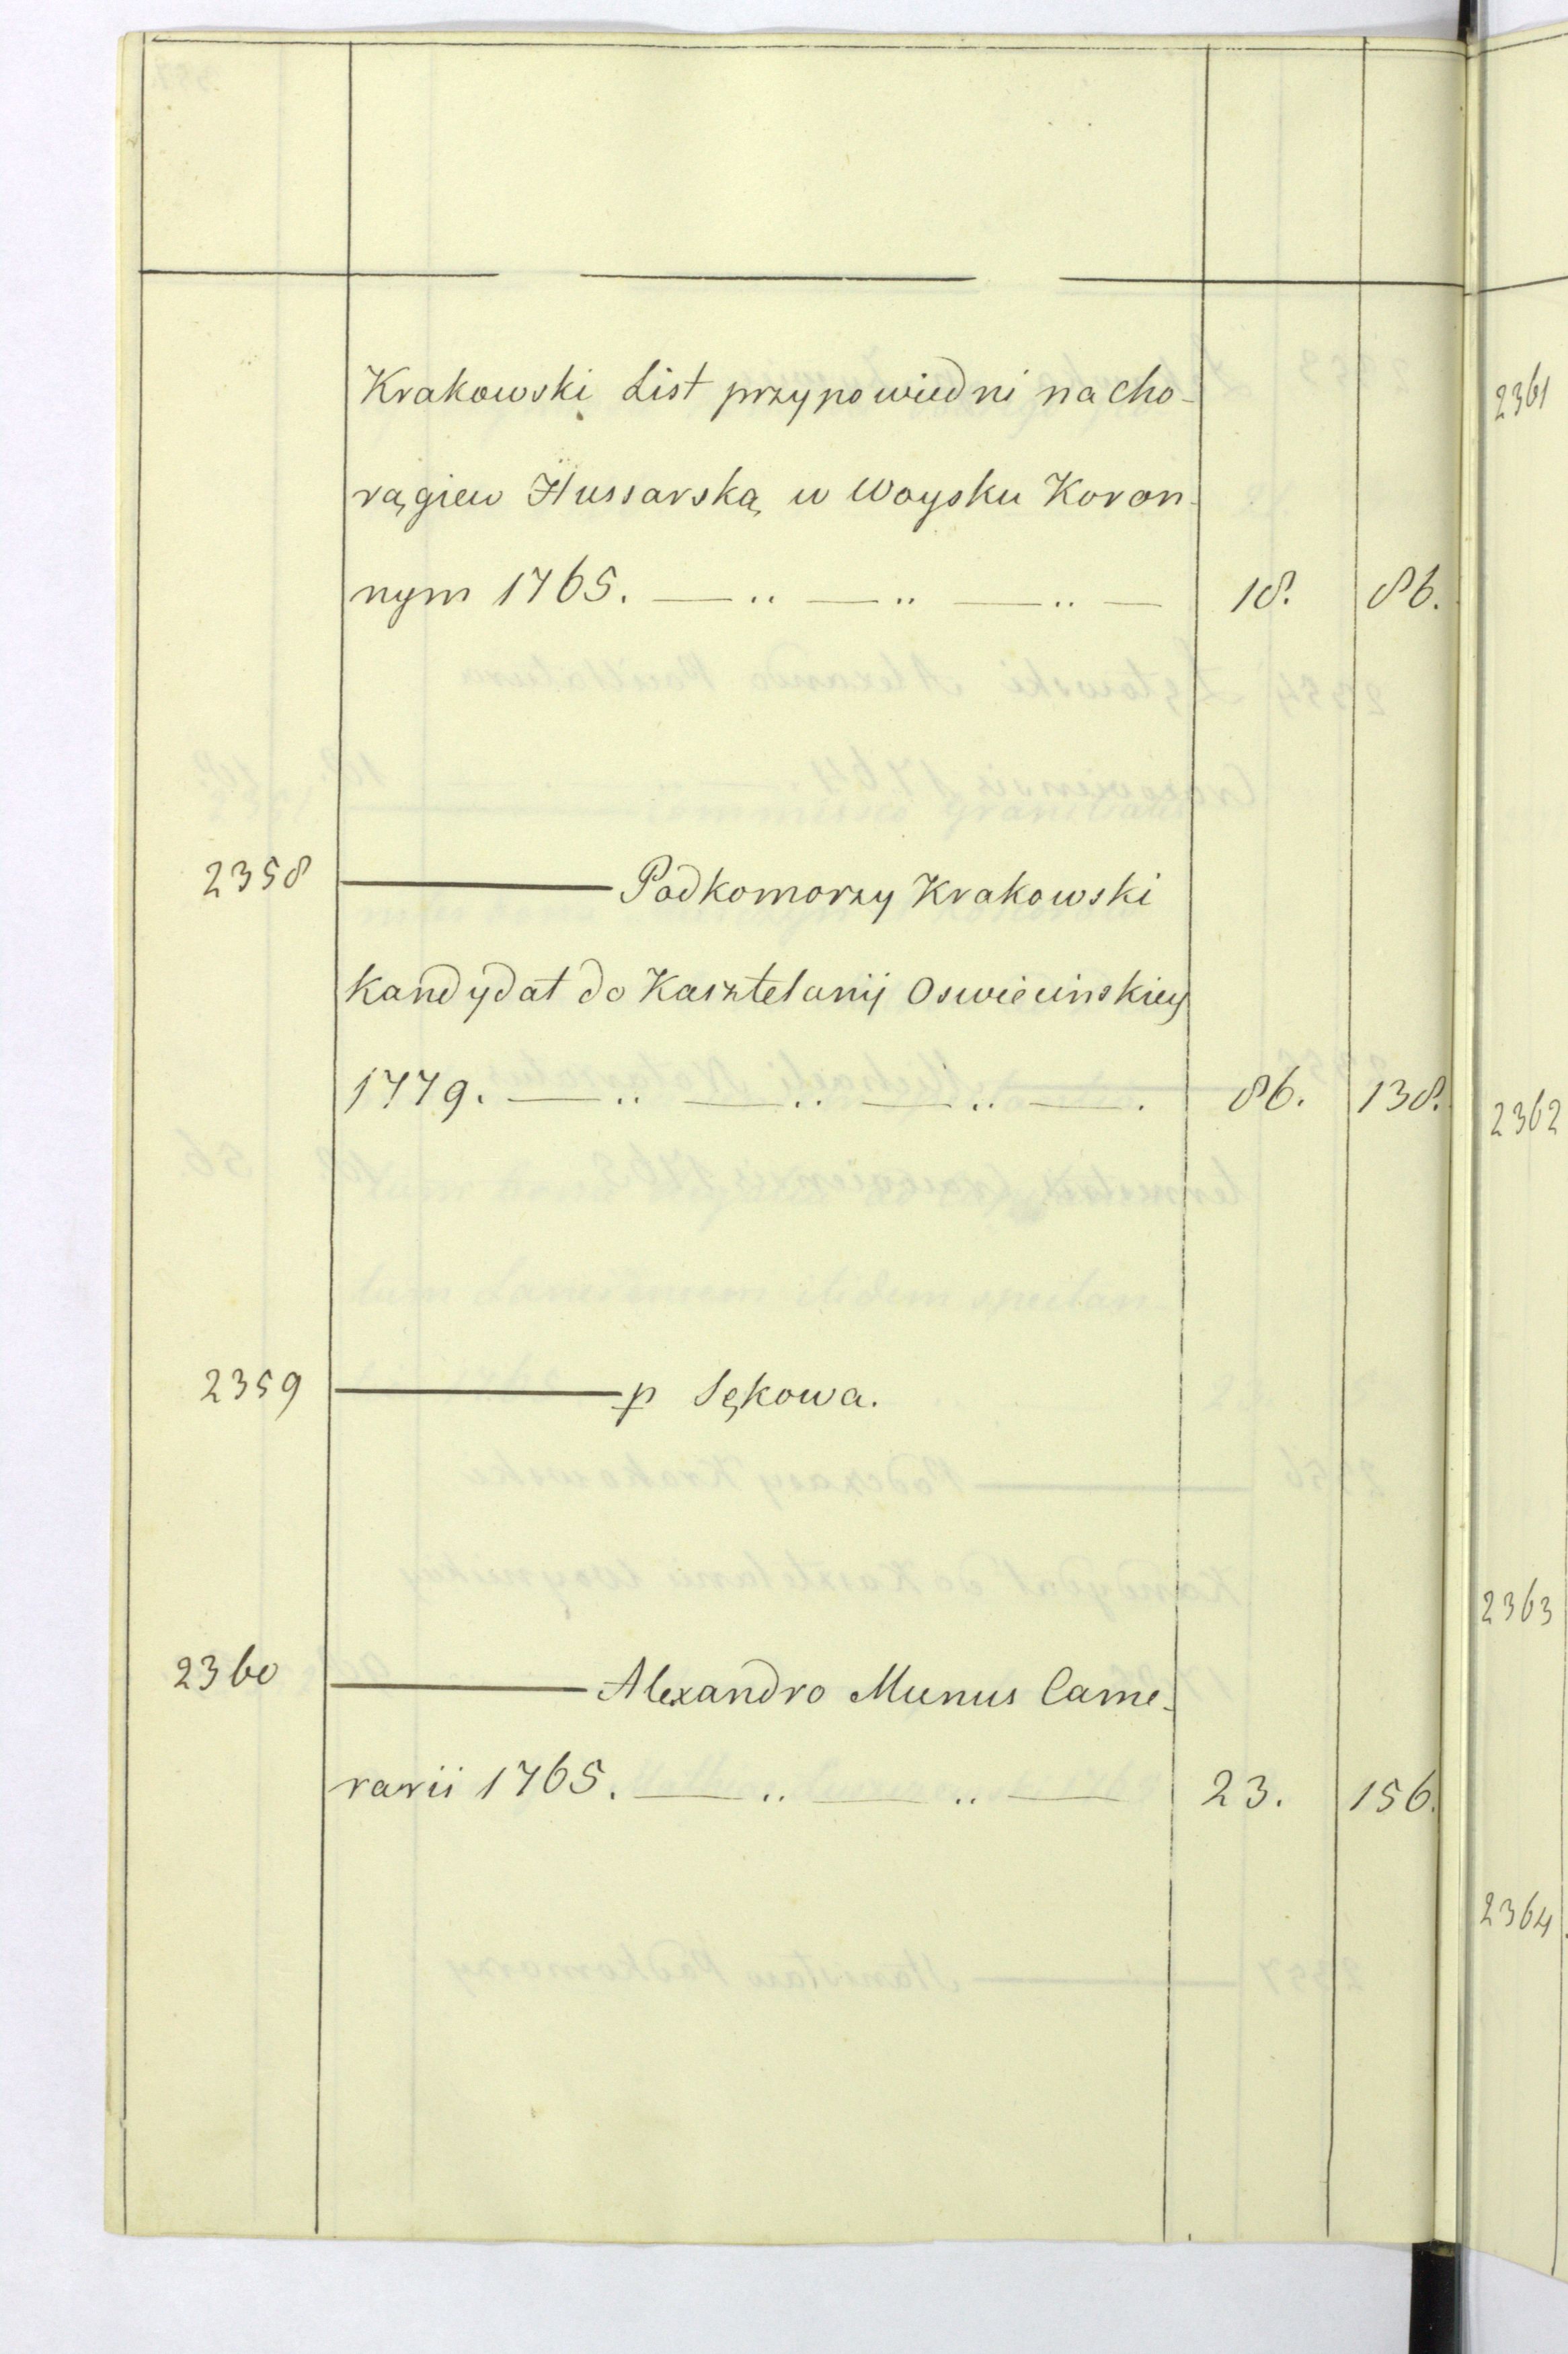 Krakowski List przypowiedni na cho-
rągiew Hussarską w Woysku Koron-
nym 1765. — .. — .. — .. — 18. 86.
2358 ——— Podkomorzy Krakowski
Kandydat do Kasztelanij Oswiecinskiey
1779. — .. — .. — .. — . 86. 138.
2359 ——— p Sękowa.
2360 ——— Alexandro Munus Came-
rarii 1765. — .. — .. — 23. 156.
2361
2362
2363
2364